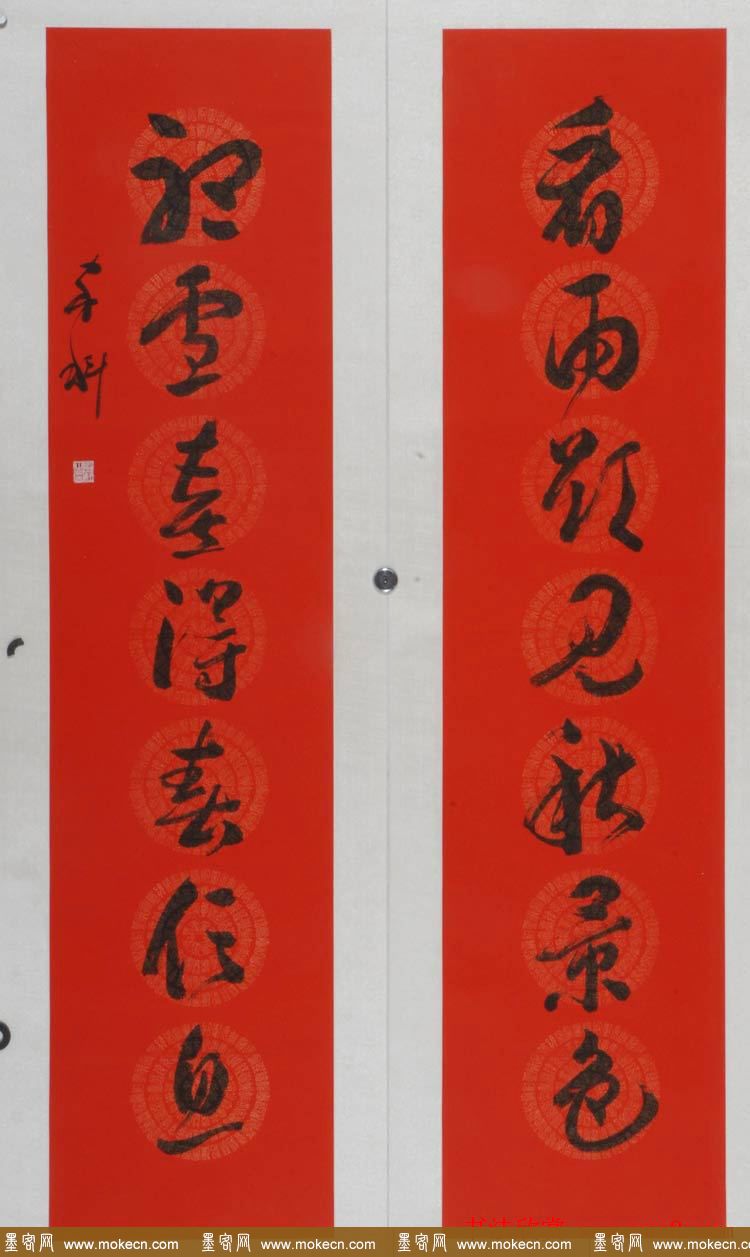 看雨歡见秋景色
雪喜得春信息
墨客网 www.mokecn.com 墨客网 www.mokecn.com 墨客网 www.mokecn.com 墨客网 www.mokecn.com